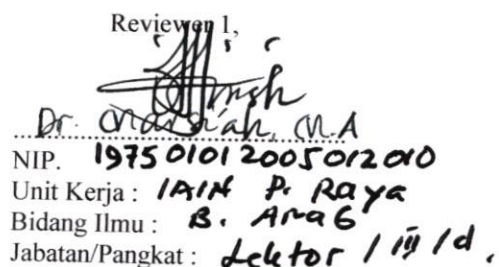 Reviewer 1,
Dr. Marsiah, M.A
NIP. 197501012005012010
Unit Kerja : IAIN P. Raya
Bidang Ilmu : B. Arab
Jabatan/Pangkat : Lektor / III / d.